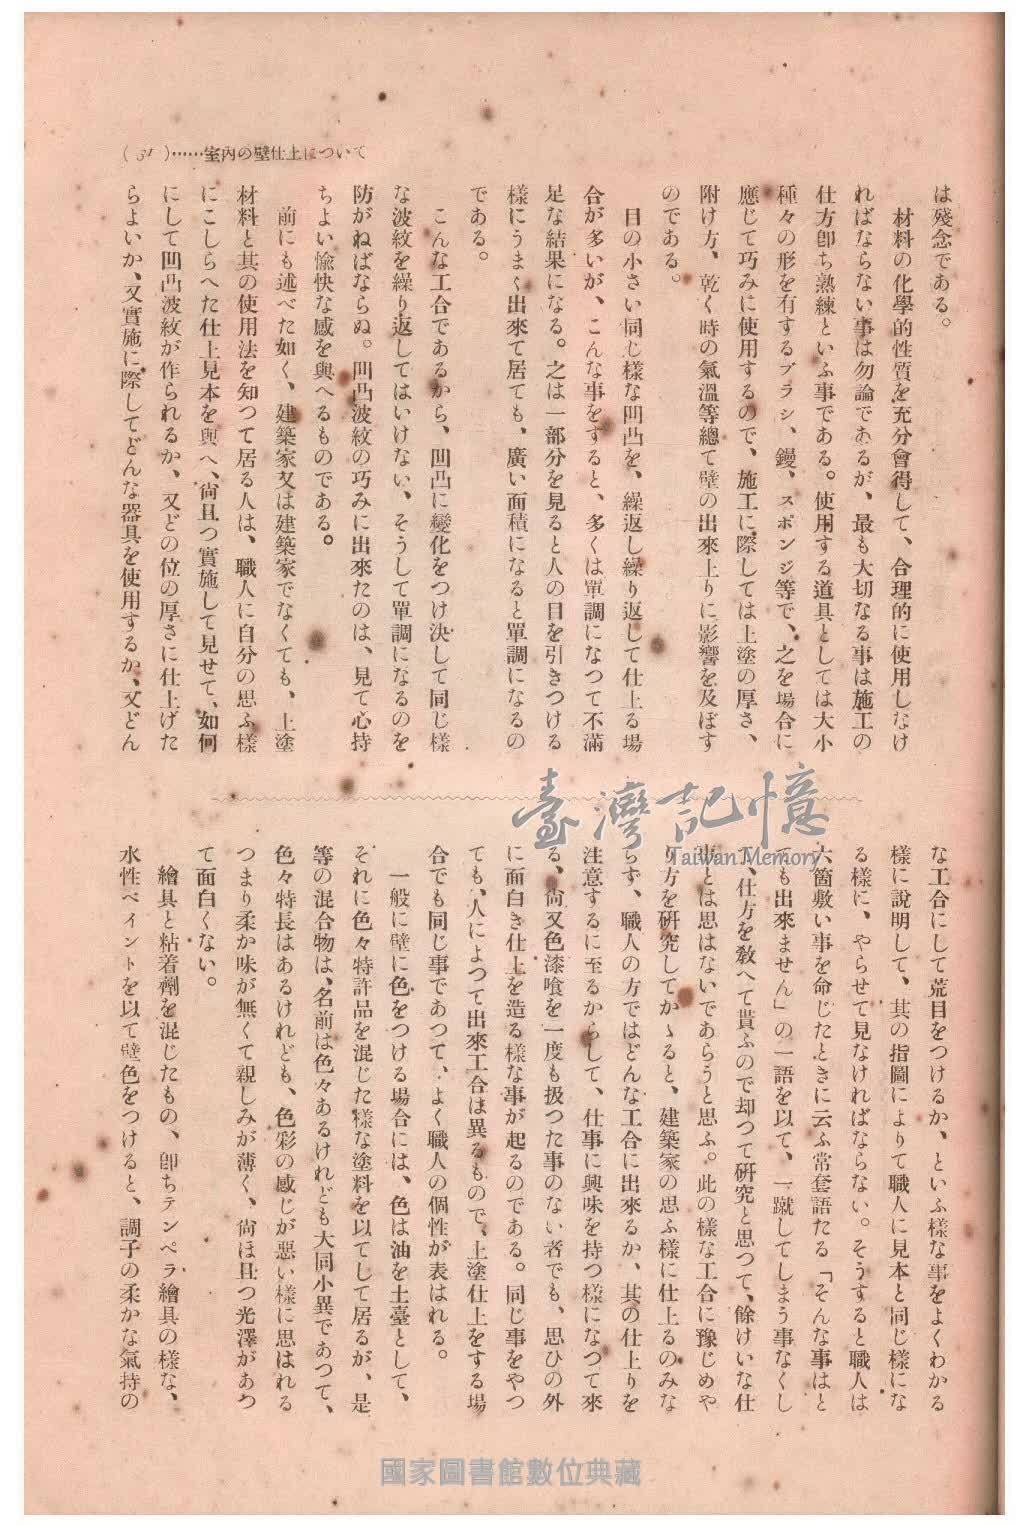 (31)……室内の壁仕上について
は殘念である。
材料の化學的性質を充分會得して、合理的に使用しなけ
ればならない事は勿論であるが、最も大切なる事は施工の
仕方卽ち熟練といふ事である。使用する道具としては大小
種々の形を有するブラシ、鏝、スポンジ等で、之を場合に
應じて巧みに使用するので、施工に際しては上塗の厚さ、
附け方、乾く時の氣溫等總て壁の出來上りに影響を及ぼす
のである。
目の小さい同じ樣な凹凸を、繰返し繰り返して仕上る場
合が多いが、こんな事をすると、多くは單調になつて不滿
足な結果になる。之は一部分を見ると人の目を引きつける
樣にうまく出來て居ても、廣い面積になると單調になるの
である。
こんな工合であるから、凹凸に變化をつけ決して同じ樣
な波紋を繰り返してはいけない、そうして單調になるのを
防がねばならぬ。凹凸波紋の巧みに出來たのは、見て心持
ちよい愉快な感を與へるものである。
前にも述べた如く、建築家又は建築家でなくても、上塗
材料と其の使用法を知つて居る人は、職人に自分の思ふ樣
にこしらへた仕上見本を與へ、尙且つ實施して見せて、如何
にして凹凸波紋が作られるか、又どの位の厚さに仕上げた
らよいか、又實施に際してどんな器具を使用するか、又どん
な工合にして荒目をつけるか、といふ樣な事をよくわかる
樣に說明して、其の指圖によりて職人に見本と同じ樣にな
る樣に、やらせて見なければならない。そうすると職人は
六箇敷い事を命じたときに云ふ常套語たる「そんな事はと
ても出來ません」の一語を以て、一蹴してしまう事なくし
て、仕方を敎へて貰ふので却つて硏究と思つて、餘けいな仕
事とは思はないであらうと思ふ。此の樣な工合に豫じめや
り方を硏究してかゝると、建築家の思ふ樣に仕上るのみな
らず、職人の方ではどんな工合に出來るか、其の仕上りを
注意するに至るからして、仕事に興味を持つ樣になつて來
る、尙又色漆喰を一度も扱つた事のない者でも、思ひの外
に面白き仕上を造る樣な事が起るのである。同じ事をやつ
ても、人によつて出來工合は異るもので、上塗仕上をする場
合でも同じ事であつて、よく職人の個性が表はれる。
一般に壁に色をつける場合には、色は油を土臺として、
それに色々特許品を混じた樣な塗料を以てして居るが、是
等の混合物は、名前は色々あるけれども大同小異であつて、
色々特長はあるけれども、色彩の感じが惡い樣に思はれる
つまり柔か味が無くて親しみが薄く、尙ほ且つ光澤があつ
て面白くない。
繪具と粘着劑を混じたもの、卽ちテンペラ繪具の樣な、
水性ペイントを以て壁色をつけると、調子の柔かな氣持の
臺灣記憶
Taiwan Memory
國家圖書館數位典藏